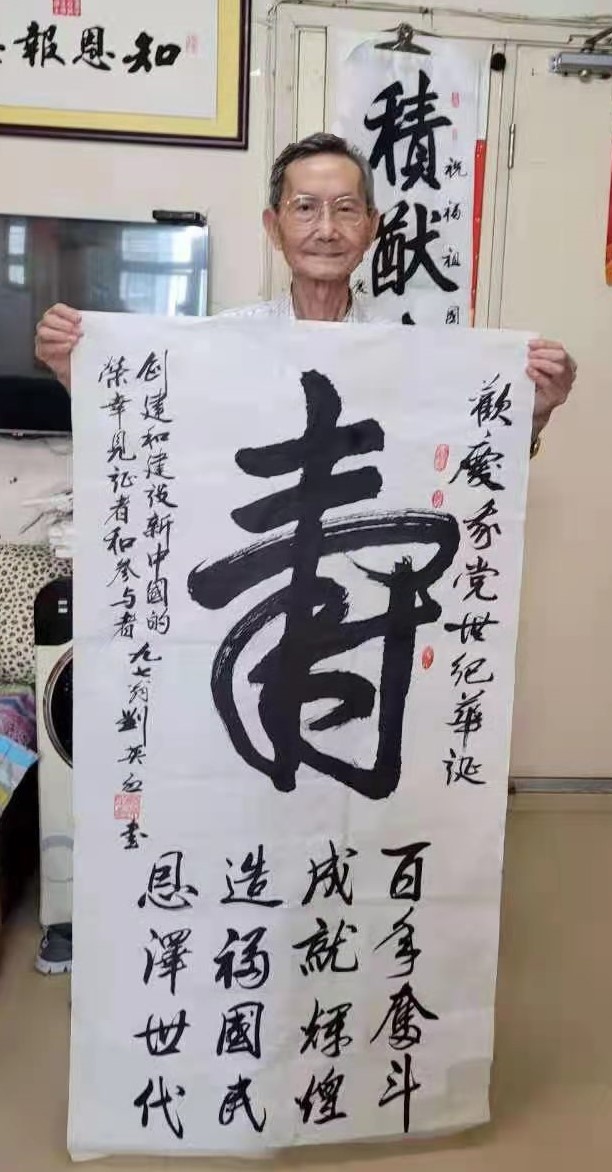 知恩報
積猷
祝福祖國
歡慶我党世纪華诞
寿
创建和建设新中國的
榮幸見证者和参与者 九七翁劉英書
百年奮斗
成就輝煌
造福國民
恩澤世代